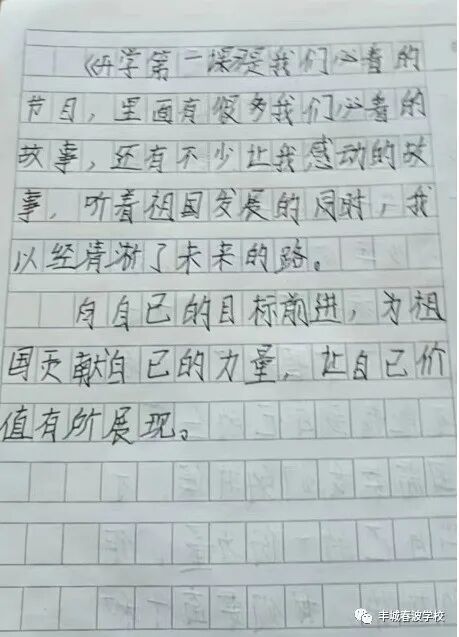 《开学第一课》是我们必看的
节目，里面有很多我们必看的
故事，还有不少让我感动的故
事，听着祖国发展的同时，我
以经清淅了未来的路。
向自己的目标前进，为祖
国贡献自己的力量，让自己价
值有所展现。
丰城春波学校